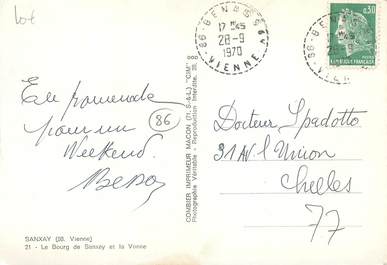 Lot
86 - BENASSAY
17 H 45
28-9
1970
VIENNE
0,30
REPUBLIQUE FRANCAISE
En promenade
pour un
Weekend.
86
COMBIER IMPRIMEUR MACON (71, S-&-L) "CIM"
Photographie Véritable - Reproduction Interdite.
Docteur Spadotto
31 Av. l'Union
Chelles
77
SANXAY (86. Vienne)
21 - Le Bourg de Sanxay et la Vonne